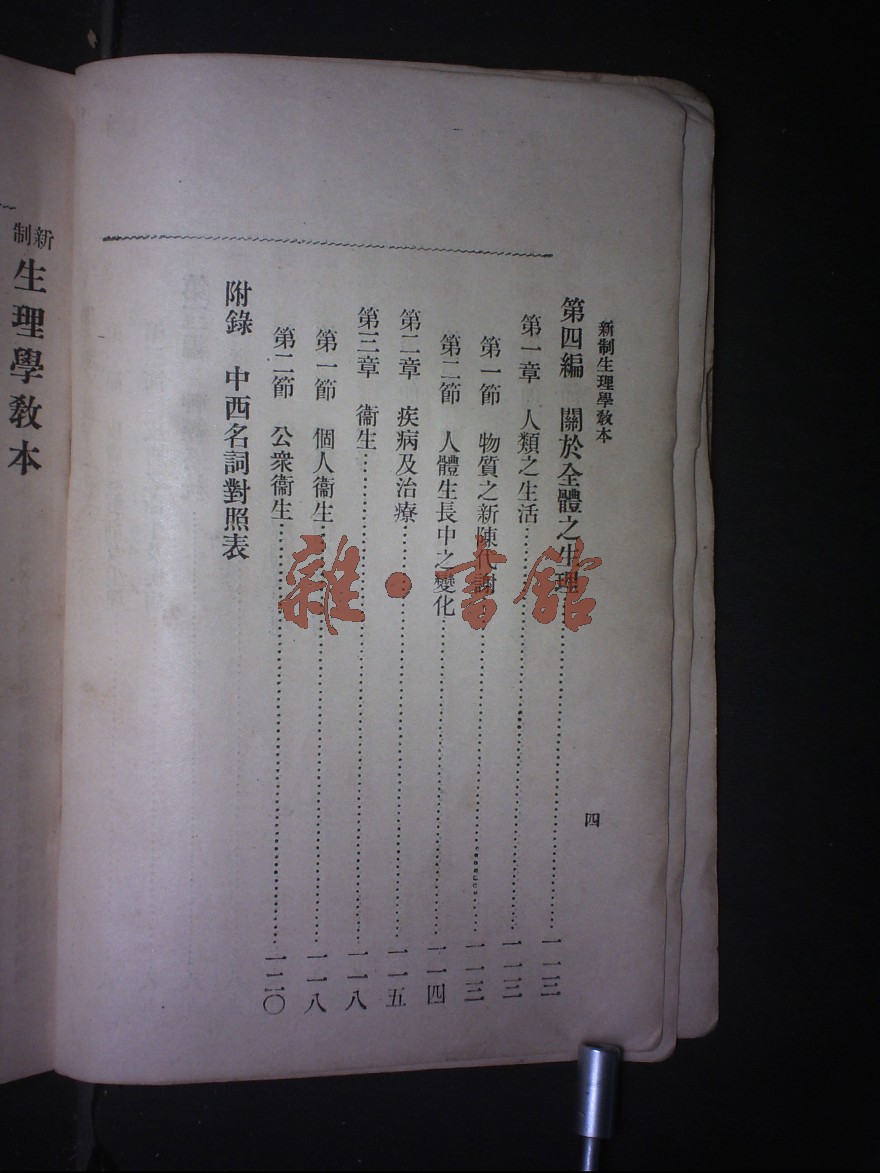 新制生理學教本
四
第四編　關於全體之生理……一一三
第一章　人類之生活……一一三
第一節　物質之新陳代謝……一一三
第二節　人體生長中之變化……一一四
第二章　疾病及治療……一一五
第三章　衞生……一一八
第一節　個人衞生……一一八
第二節　公衆衞生……一二〇
附錄　中西名詞對照表
新制
生理學教本
雜·書館